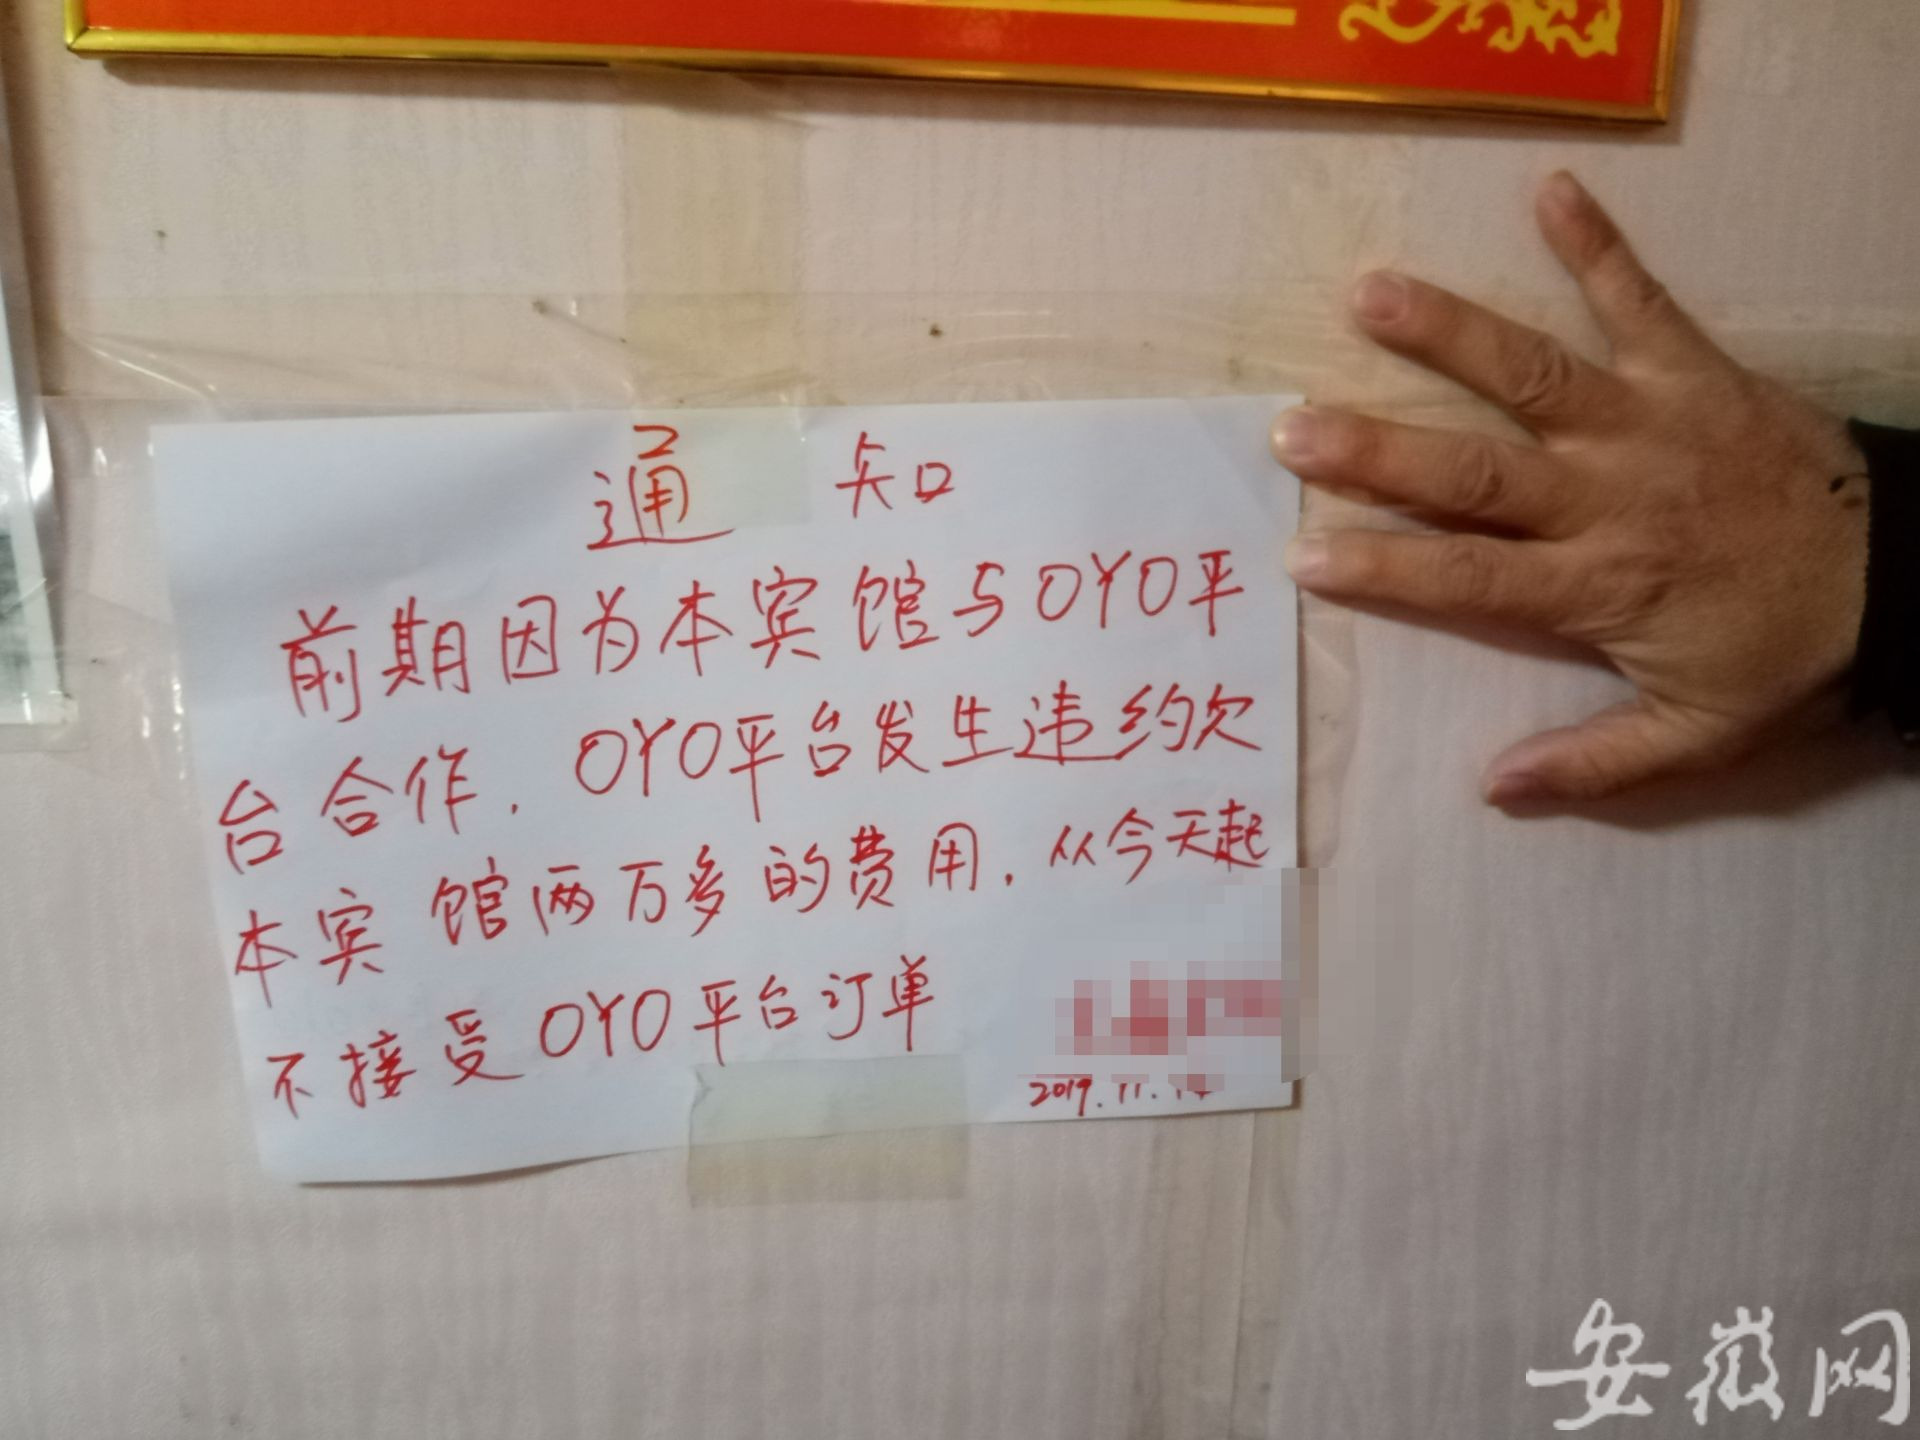 通知
前期因为本宾馆与OYO平
台合作.OYO平台发生违约欠
本宾馆两万多的费用.从今天起
不接受OYO平台订单
2019.11.
安徽网